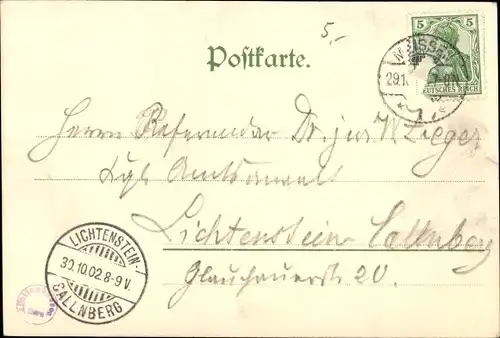 5.-
Postkarte.
5
DEUTSCHES REICH
MEISSEN
29.10
7-8N
1
Herrn Referendar Dr. jur W. Zieger
Kgl. Amtsanwalt
Lichtenstein Callnberg
Glauchauerstr 20.
LICHTENSTEIN-
30.10.02.8-9V.
CALLNBERG